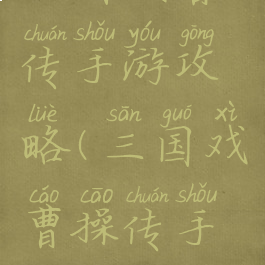 chuán shǒu yóu gōng
传手游攻
lüè sān guó xì
略(三国戏
cáo cāo chuán shǒu
曹操传手